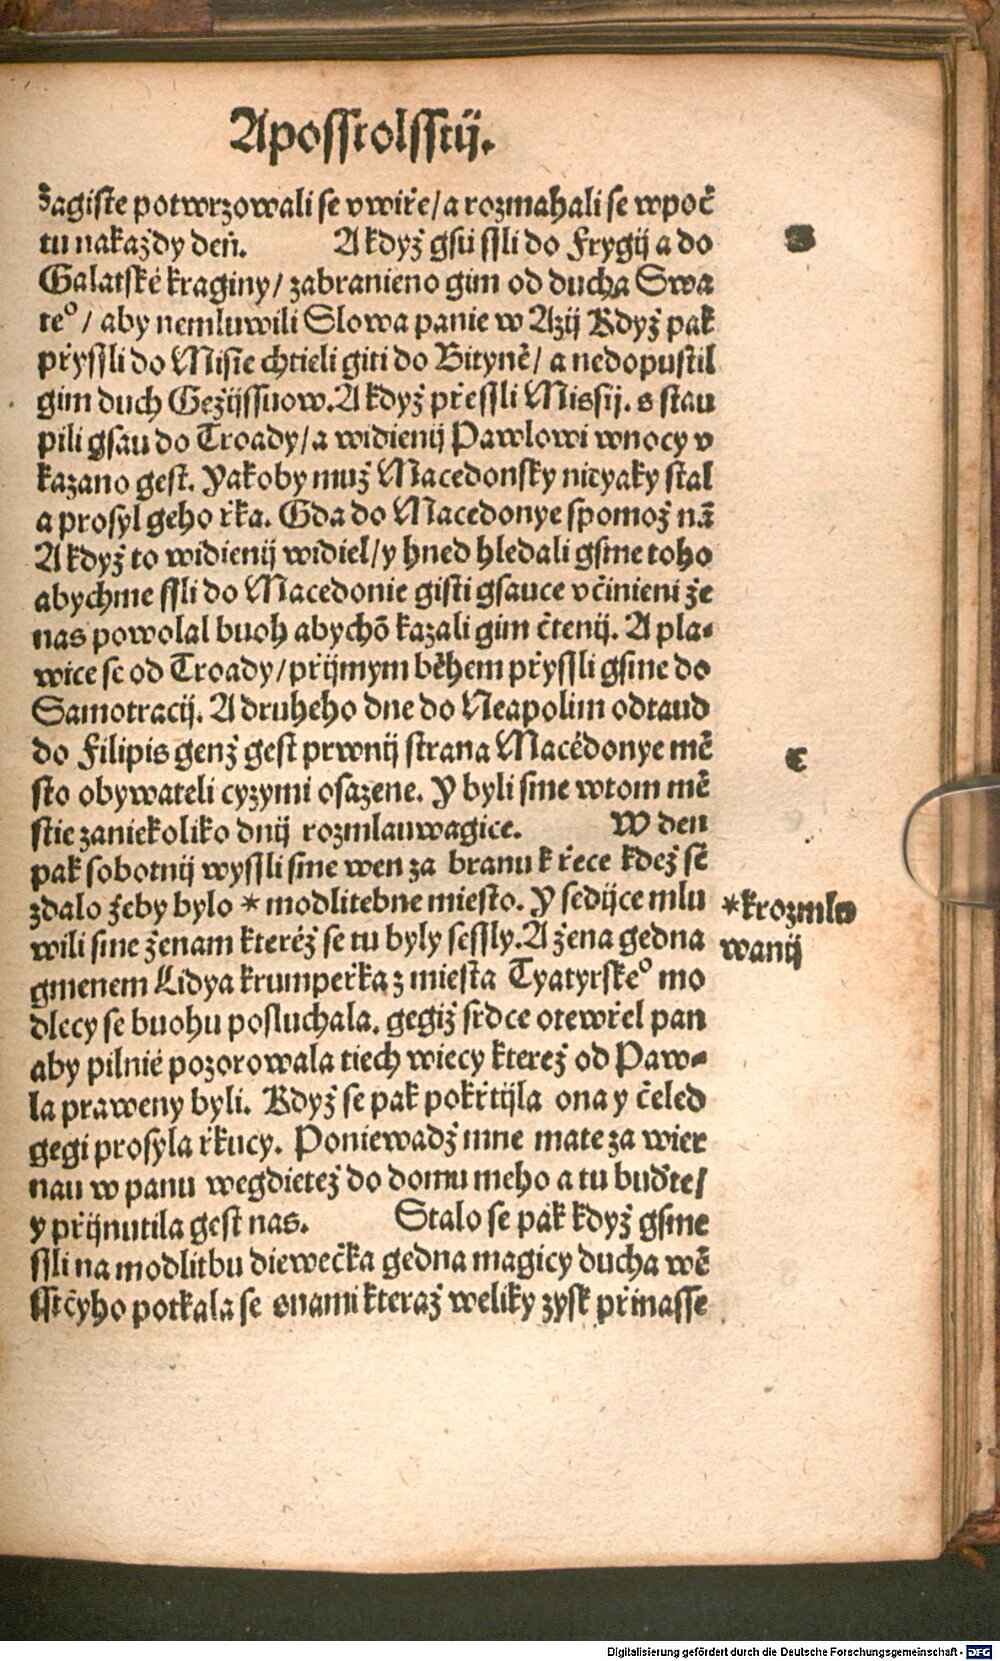 Aposstolsstij.
zagiste potwrzowali se v wiře/ a rozmahali se w poč
tu nakaždy deň. A když gsú ssli do Frygij a do
B
Galatské kraginy/ zabranieno gim od ducha Swa
teº/ aby nemluwili Slowa panie w Azij Když pak
přyssli do Misie chtieli giti do Bityně/ a nedopustil
gim duch Gežijssuow. A když přessli Missij. s stau
pili gsau do Troady/ a widienij Pawlowi w nocy v
kazano gest. Yakoby muž Macedonsky nityaky stal
a prosyl geho řka. Gda do Macedonye spomož nā
A když to widienij widiel/ y hned hledali gsme toho
abychme ssli do Macedonie gisti gsauce včinieni že
nas powolal buoh abychō kazali gim čtenij. A pla-
wice se od Troady/ přijmym během přyssli gsme do
Samotracij. A druheho dne do Neapolim odtaud
do Filipis genž gest prwnij strana Macedonye mě
C
sto obywateli cyzymi osazene. Y byli sme w tom mě
stie zaniekoliko dnij rozmlauwagice. W den
pak sobotnij wyssli sme wen za branu k řece kdež sě
zdalo žeby bylo * modlitebne miesto. Y sedijce mlu
*k rozmlu
wanij
wili sme ženam kteréž se tu byly sessly. A žena gedna
gmenem Lidya krumpeřka z miesta Tyatyrskeº mo
dlecy se buohu posluchala, gegiž srdce otewřel pan
aby pilnie pozorowala tiech wiecy kterež od Paw-
la praweny byli. Když se pak pokřtijla ona y čeled
gegi prosyla řkucy. Poniewadž mne mate za wier
nau w panu wegdietež do domu meho a tu buďte/
y přijnutila gest nas. Stalo se pak když gsme
ssli na modlitbu diewečka gedna magicy ducha wě
sstčyho potkala se s nami kteraž weliky zysk přinasse
Digitalisierung gefördert durch die Deutsche Forschungsgemeinschaft - DFG